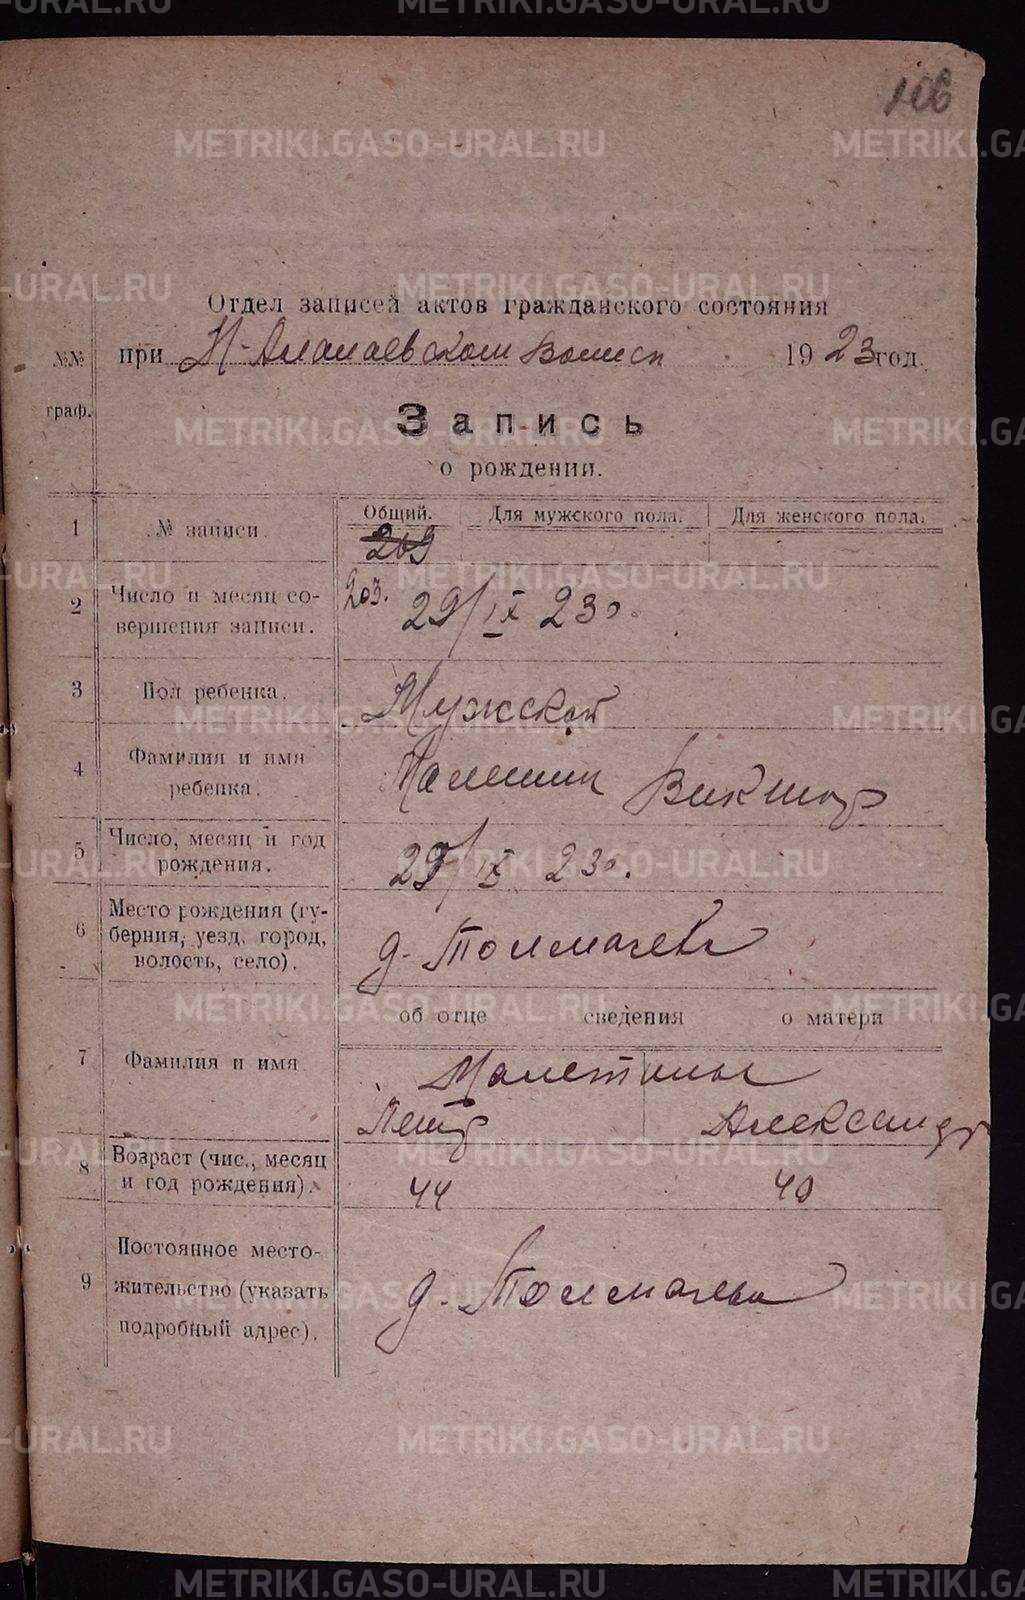 106
Отдел записей актов гражданского состояния
при Н-Алапаевском Волисп 1923 год.
№№ граф.
Запись
о рождении.
Общий. Для мужского пола. Для женского пола.
1 № записи. 209
203.
2 Число и месяц со-
вершения записи. 29/IX 23 г.
3 Пол ребенка. Мужской
4 Фамилия и имя
ребенка. Виктор
5 Число, месяц и год
рождения. 23 г.
6 Место рождения (гу-
берния, уезд, город,
волость, село). д. Толмачева
об отце сведения о матери
7 Фамилия и имя
Петр Александр
8 Возраст (чис., месяц
и год рождения). 44 40
9 Постоянное место-
жительство (указать
подробный адрес). д. Толмачева
METRIKI.GASO-URAL.RU